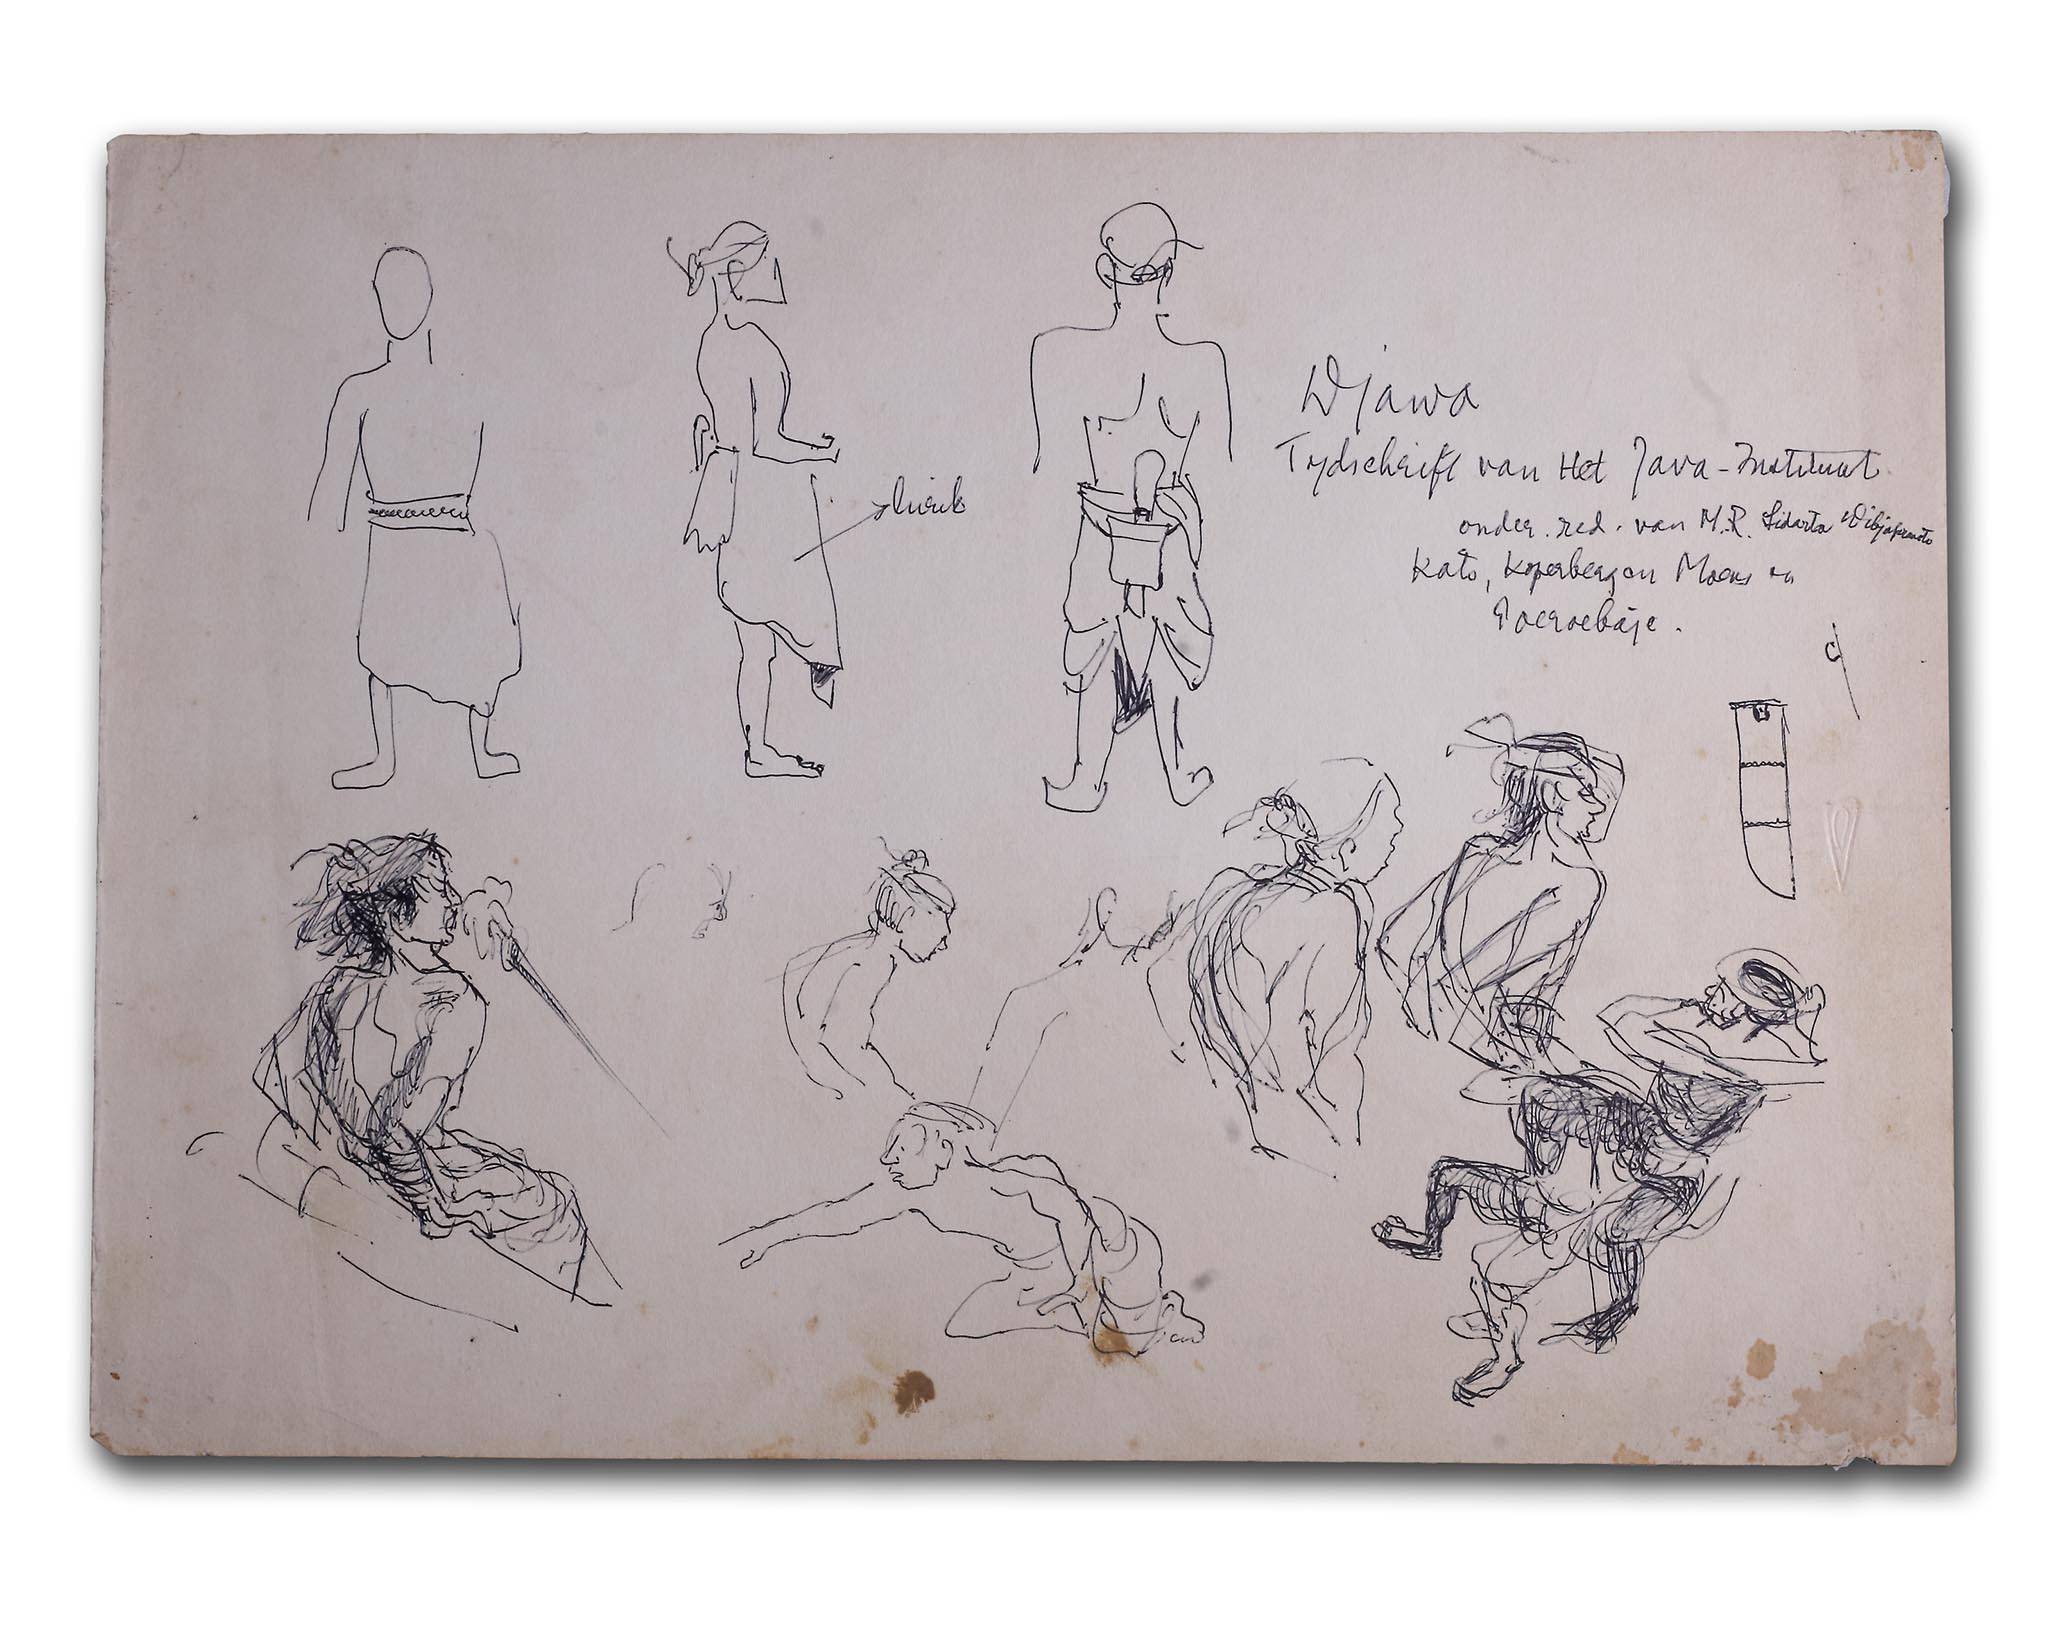 Djawa
Tydschrift van Het Java-Instituut
onder. red. van M.R. Sidarta Wibjapranoto
Kats, Koperberg en Moens en
Poeroebaje.